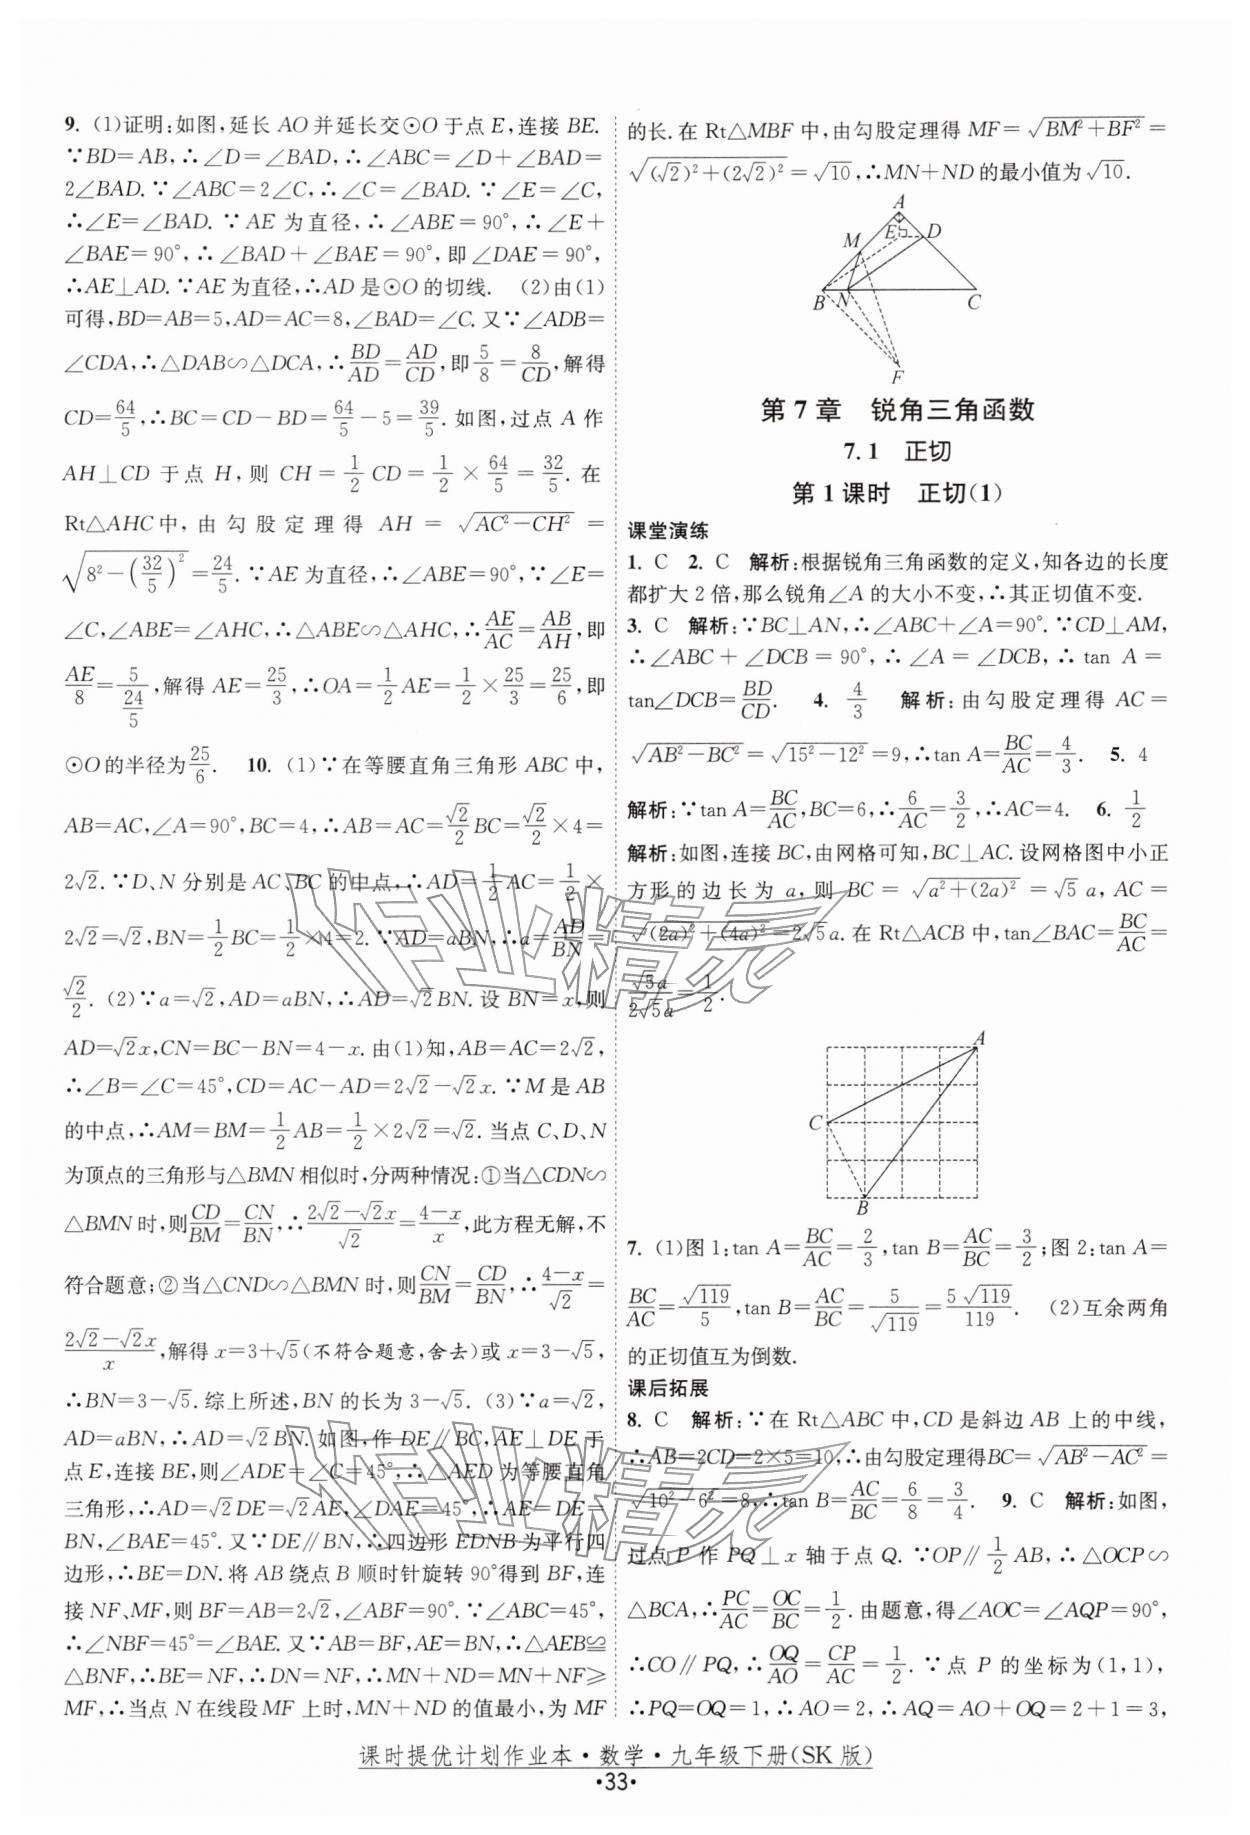 9. (1)证明:如图,延长 AO 并延长交⊙O 于点 E,连接 BE.
∵BD=AB,∴∠D=∠BAD,∴∠ABC=∠D+∠BAD=
2∠BAD. ∵∠ABC=2∠C,∴∠C=∠BAD. ∵∠E=∠C,
∴∠E=∠BAD. ∵AE 为直径,∴∠ABE=90°,∴∠E+
∠BAE=90°,∴∠BAD+∠BAE=90°,即∠DAE=90°,
∴AE⊥AD. ∵AE 为直径,∴AD 是⊙O 的切线. (2)由(1)
可得,BD=AB=5,AD=AC=8,∠BAD=∠C. 又∵∠ADB=
∠CDA,∴△DAB∽△DCA,∴BD/AD=AD/CD,即5/8=8/CD,解得
CD=64/5,∴BC=CD-BD=64/5-5=39/5. 如图,过点 A 作
AH⊥CD 于点 H,则 CH=1/2 CD=1/2×64/5=32/5. 在
Rt△AHC中,由勾股定理得 AH=√(AC²-CH²)=
√(8²-(32/5)²)=24/5. ∵AE 为直径,∴∠ABE=90°,∵∠E=
∠C,∠ABE=∠AHC,∴△ABE∽△AHC,∴AE/AC=AB/AH,即
AE/8=5/(24/5),解得 AE=25/3,∴OA=1/2 AE=1/2×25/3=25/6,即
⊙O的半径为25/6. 10. (1)∵在等腰直角三角形 ABC 中,
AB=AC,∠A=90°,BC=4,∴AB=AC=√2/2 BC=√2/2×4=
2√2. ∵D、N 分别是 AC、BC 的中点,∴AD=1/2 AC=1/2×
2√2=√2,BN=1/2 BC=1/2×4=2. ∵AD=aBN,∴a=AD/BN=
√2/2. (2)∵a=√2,AD=aBN,∴AD=√2BN. 设 BN=x,则
AD=√2x,CN=BC-BN=4-x. 由(1)知,AB=AC=2√2,
∴∠B=∠C=45°,CD=AC-AD=2√2-√2x. ∵M 是 AB
的中点,∴AM=BM=1/2 AB=1/2×2√2=√2. 当点 C、D、N
为顶点的三角形与△BMN 相似时,分两种情况:①当△CDN∽
△BMN 时,则CD/BM=CN/BN,∴(2√2-√2x)/√2=(4-x)/x,此方程无解,不
符合题意;②当△CND∽△BMN 时,则CN/BM=CD/BN,∴(4-x)/√2=
(2√2-√2x)/x,解得 x=3+√5(不符合题意,舍去)或 x=3-√5,
∴BN=3-√5. 综上所述,BN 的长为 3-√5. (3)∵a=√2,
AD=aBN,∴AD=√2BN. 如图,作 DE∥BC,AE⊥DE 于
点 E,连接 BE,则∠ADE=∠C=45°,∴△AED 为等腰直角
三角形,∴AD=√2DE=√2AE,∠DAE=45°,∴AE=DE=
BN,∠BAE=45°. 又∵DE∥BN,∴四边形 EDNB 为平行四
边形,∴BE=DN. 将 AB 绕点 B 顺时针旋转 90°得到 BF,连
接 NF、MF,则 BF=AB=2√2,∠ABF=90°. ∵∠ABC=45°,
∴∠NBF=45°=∠BAE. 又∵AB=BF,AE=BN,∴△AEB≌
△BNF,∴BE=NF,∴DN=NF,∴MN+ND=MN+NF≥
MF,∴当点 N 在线段 MF 上时,MN+ND 的值最小,为 MF
的长. 在 Rt△MBF 中,由勾股定理得 MF=√(BM²+BF²)=
√((√2)²+(2√2)²)=√10,∴MN+ND 的最小值为√10.
A
E D
M
B N C
F
第 7 章 锐角三角函数
7.1 正切
第 1 课时 正切(1)
课堂演练
1. C 2. C 解析:根据锐角三角函数的定义,知各边的长度
都扩大 2 倍,那么锐角∠A 的大小不变,∴其正切值不变.
3. C 解析:∵BC⊥AN,∴∠ABC+∠A=90°. ∵CD⊥AM,
∴∠ABC+∠DCB=90°,∴∠A=∠DCB,∴tan A=
tan∠DCB=BD/CD. 4. 4/3 解析:由勾股定理得 AC=
√(AB²-BC²)=√(15²-12²)=9,∴tan A=BC/AC=4/3. 5. 4
解析:∵tan A=BC/AC,BC=6,∴6/AC=3/2,∴AC=4. 6. 1/2
解析:如图,连接 BC,由网格可知,BC⊥AC. 设网格图中小正
方形的边长为 a,则 BC=√(a²+(2a)²)=√5a,AC=
√((2a)²+(4a)²)=2√5a. 在 Rt△ACB 中,tan∠BAC=BC/AC=
√5a/2√5a=1/2.
A
C
B
7. (1)图 1:tan A=BC/AC=2/3,tan B=AC/BC=3/2;图 2:tan A=
BC/AC=√119/5,tan B=AC/BC=5/√119=5√119/119. (2)互余两角
的正切值互为倒数.
课后拓展
8. C 解析:∵在 Rt△ABC 中,CD 是斜边 AB 上的中线,
∴AB=2CD=2×5=10,∴由勾股定理得BC=√(AB²-AC²)=
√(10²-6²)=8,∴tan B=AC/BC=6/8=3/4. 9. C 解析:如图,
过点 P 作 PQ⊥x 轴于点 Q. ∵OP∥1/2 AB,∴△OCP∽
△BCA,∴PC/AC=OC/BC=1/2. 由题意,得∠AOC=∠AQP=90°,
∴CO∥PQ,∴OQ/AO=CP/AC=1/2. ∵点 P 的坐标为(1,1),
∴PQ=OQ=1,∴AO=2,∴AQ=AO+OQ=2+1=3,
课时提优计划作业本·数学·九年级下册(SK 版)
·33·
作业精灵
作业精灵